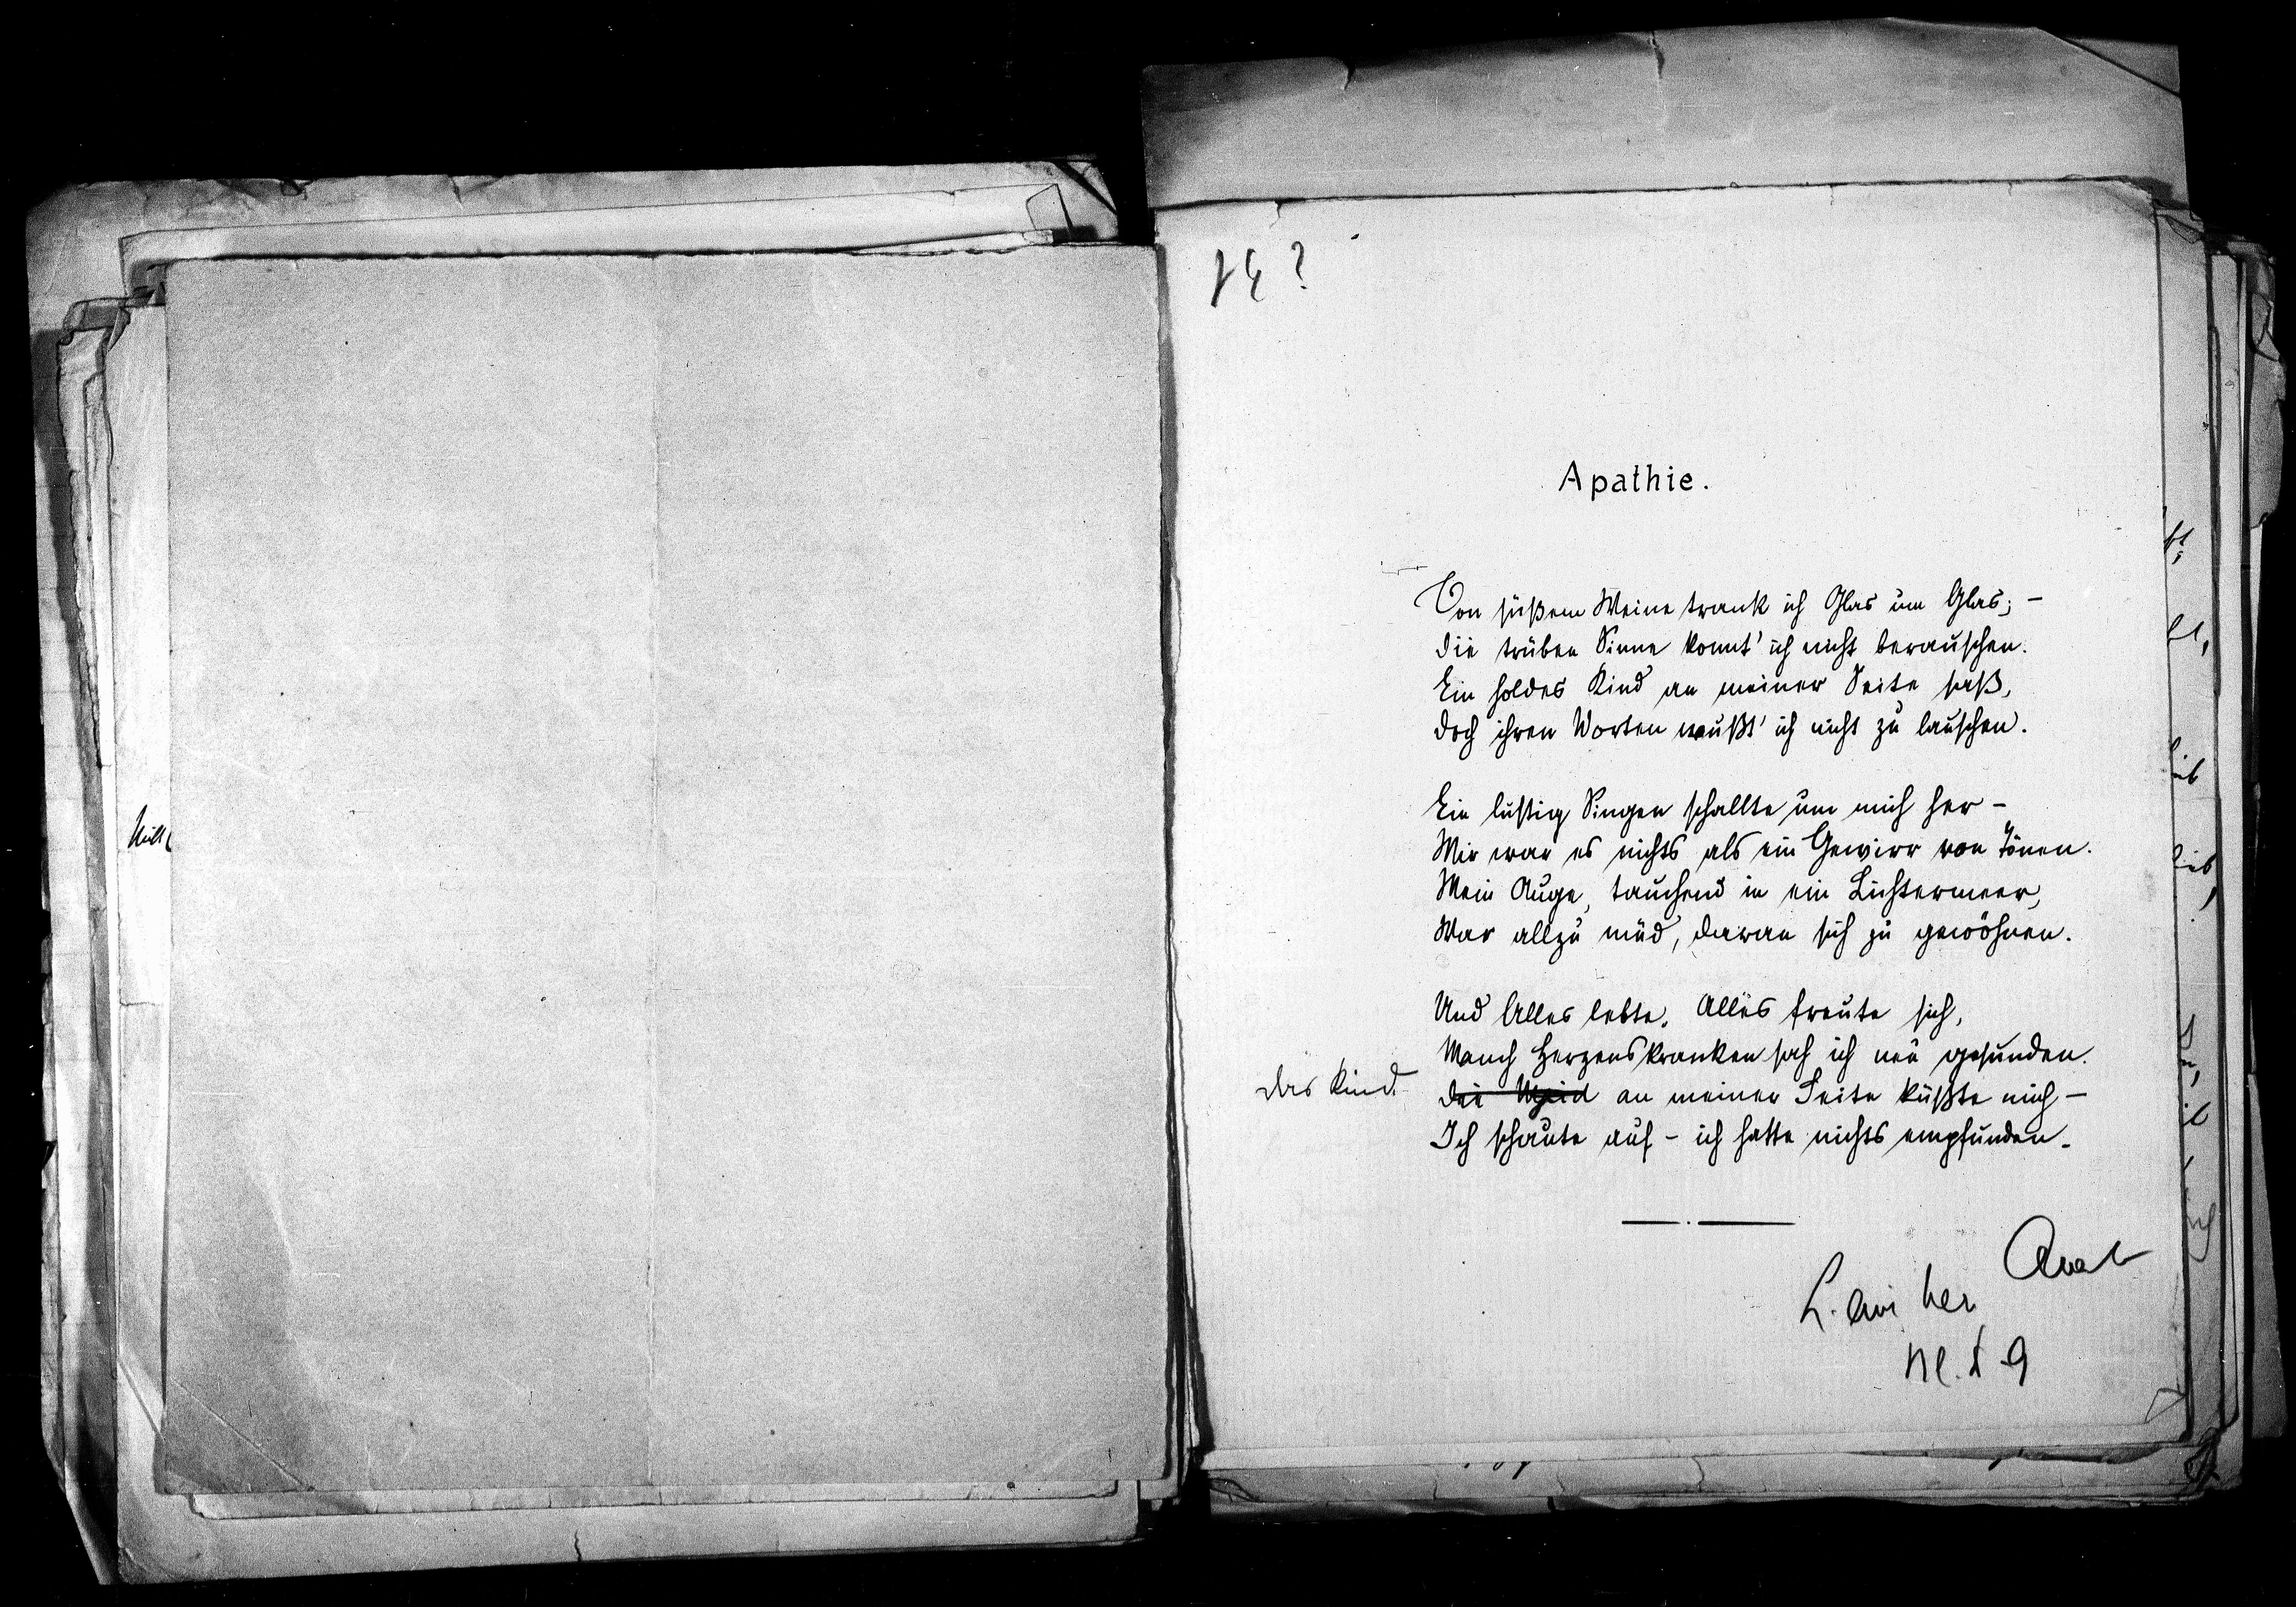 Apathie.
Von süßem Weine trank ich Glas um Glas; –
die trüben Sinne konnt' ich nicht berauschen.
Ein holdes Kind an meiner Seite saß,
doch ihren Worten wußt' ich nicht zu lauschen.
Ein lustig Singen schallte um mich her –
Mir war es nichts als ein Gewirr von Tönen.
Mein Auge, tauchend in ein Lichtermeer,
War allzu müd, daran sich zu gewöhnen.
Und Alles lebte, Alles freute sich,
Manch Herzenskranken sah ich neu gesunden.
das Kind
die Maid an meiner Seite küßte mich –
Ich schaute auf – ich hatte nichts empfunden.